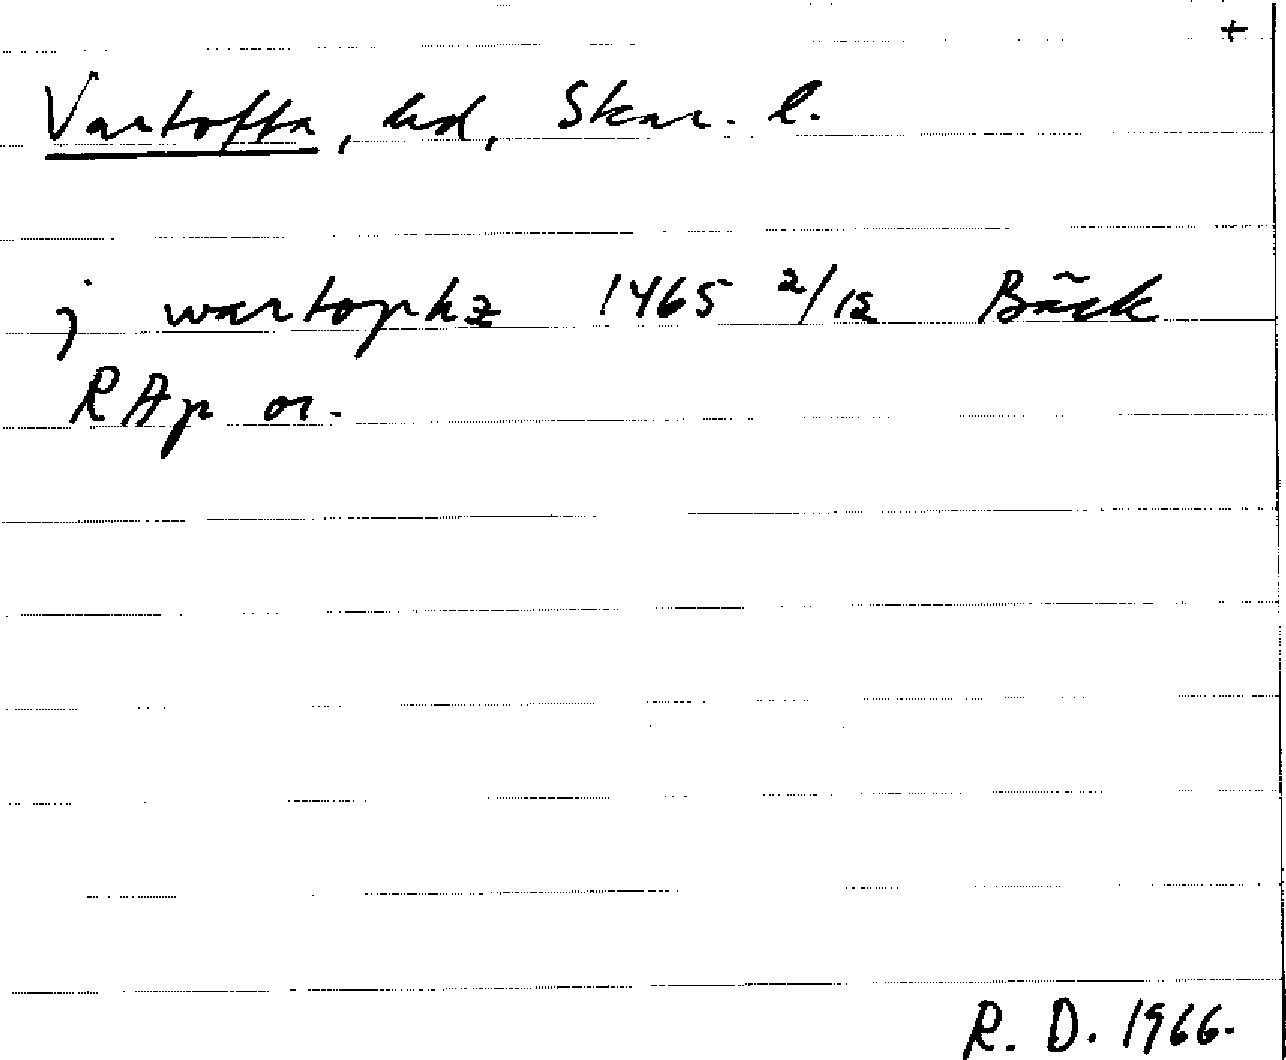 +
Vartofta, hd, Skar. l.
j wartophz 1465 2/12 Bäck
RAp or.
R. D. 1966.